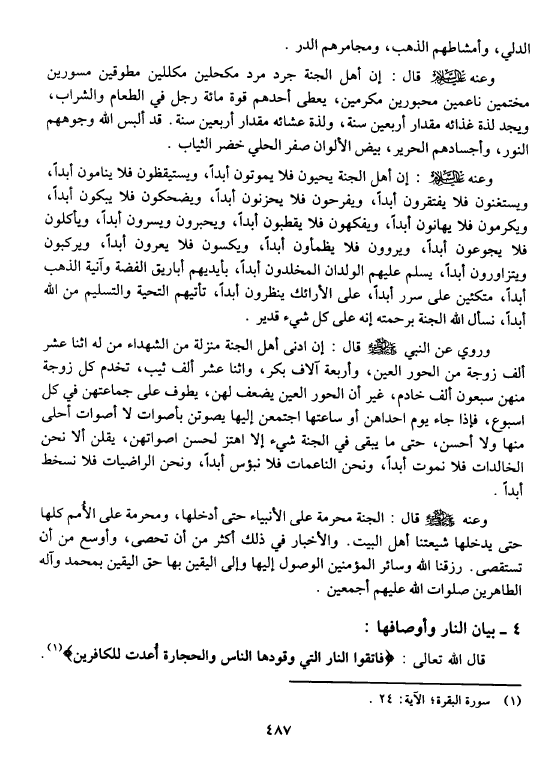 الدلي، وأمشاطهم الذهب، ومجامرهم الدر .
وعنه عليه السلام قال : إن أهل الجنة جرد مرد مكحلين مكللين مطوقين مسورين
مختمين ناعمين محبورين مكرمين، يعطى أحدهم قوة مائة رجل في الطعام والشراب،
ويجد لذة غذائه مقدار أربعين سنة، ولذة عشائه مقدار أربعين سنة. قد ألبس الله وجوههم
النور، وأجسادهم الحرير، بيض الألوان صفر الحلي خضر الثياب .
وعنه عليه السلام : إن أهل الجنة يحيون فلا يموتون أبداً، ويستيقظون فلا ينامون أبداً،
ويستغنون فلا يفتقرون أبداً، ويفرحون فلا يحزنون أبداً، ويضحكون فلا يبكون أبداً،
ويكرمون فلا يهانون أبداً، ويفكهون فلا يقطبون أبداً، ويحبرون ويسرون أبداً، ويأكلون
فلا يجوعون أبداً، ويروون فلا يظمأون أبداً، ويكسون فلا يعرون أبداً، ويركبون
ويتزاورون أبداً، يسلم عليهم الولدان المخلدون أبداً، بأيديهم أباريق الفضة وآنية الذهب
أبداً، متكئين على سرر أبداً، على الأرائك ينظرون أبداً، تأتيهم التحية والتسليم من الله
أبداً، نسأل الله الجنة برحمته إنه على كل شيء قدير .
وروي عن النبي ﷺ قال : إن ادنى أهل الجنة منزلة من الشهداء من له اثنا عشر
ألف زوجة من الحور العين، وأربعة آلاف بكر، واثنا عشر ألف ثيب، تخدم كل زوجة
منهن سبعون ألف خادم، غير أن الحور العين يضعف لهن، يطوف على جماعتهن في كل
اسبوع، فإذا جاء يوم احداهن أو ساعتها اجتمعن إليها يصوتن بأصوات لا أصوات أحلى
منها ولا أحسن، حتى ما يبقى في الجنة شيء إلا اهتز لحسن اصواتهن، يقلن ألا نحن
الخالدات فلا نموت أبداً، ونحن الناعمات فلا نبؤس أبداً، ونحن الراضيات فلا نسخط
أبداً .
وعنه ﷺ قال : الجنة محرمة على الأنبياء حتى أدخلها، ومحرمة على الأُمم كلها
حتى يدخلها شيعتنا أهل البيت. والأخبار في ذلك أكثر من أن تحصى، وأوسع من أن
تستقصى. رزقنا الله وسائر المؤمنين الوصول إليها وإلى اليقين بها حق اليقين بمحمد وآله
الطاهرين صلوات الله عليهم أجمعين .
٤ ـ بيان النار وأوصافها :
قال الله تعالى : ﴿فاتقوا النار التي وقودها الناس والحجارة أُعدت للكافرين﴾(١) .
(١) سورة البقرة؛ الآية: ٢٤ .
٤٨٧